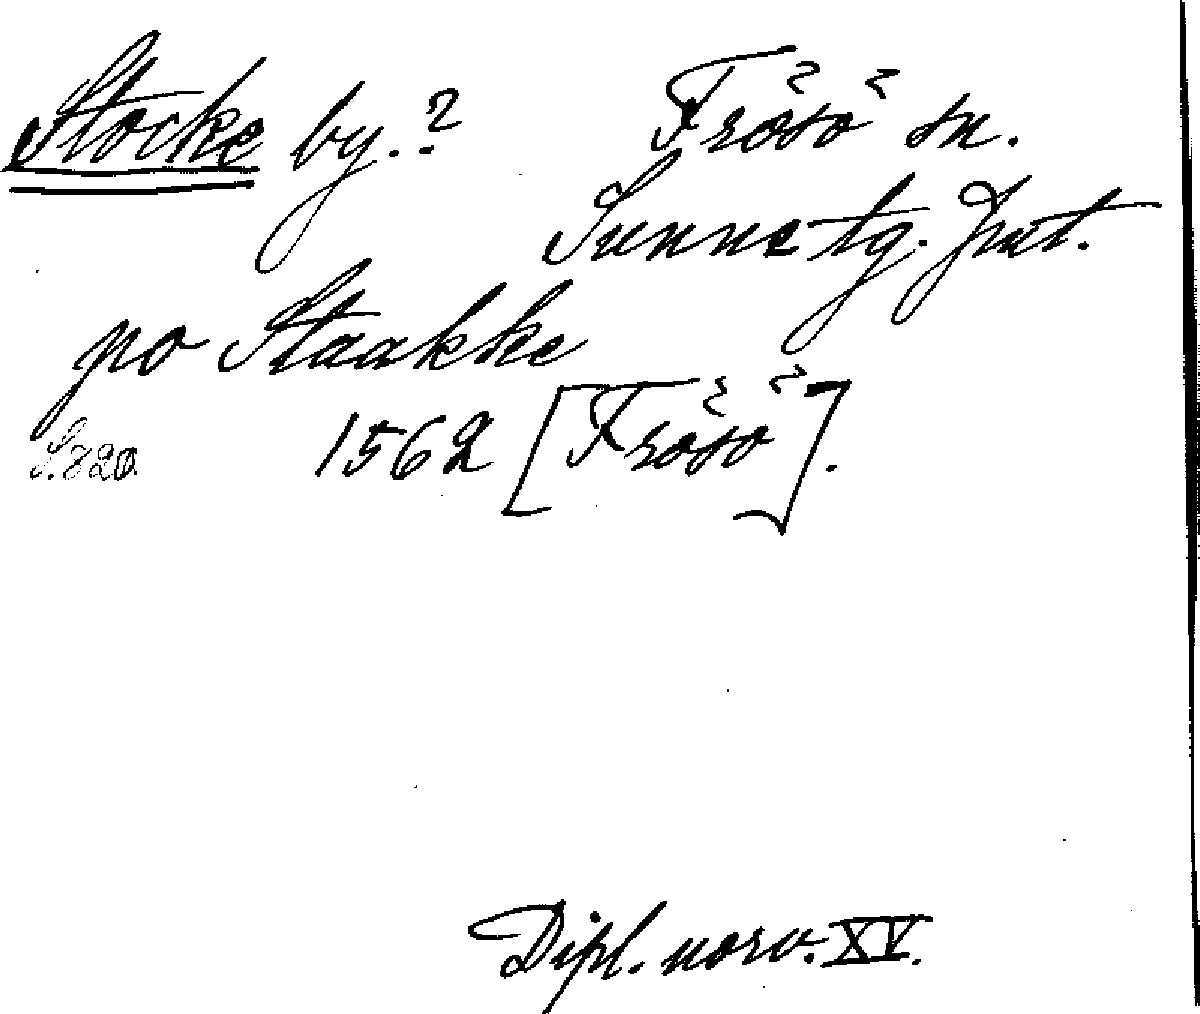 Stocke by.? Frösö sn.
Sunne tg. Jmt.
po Staakke
S.820 1562 [Frösö].
Dipl. norv. XV.